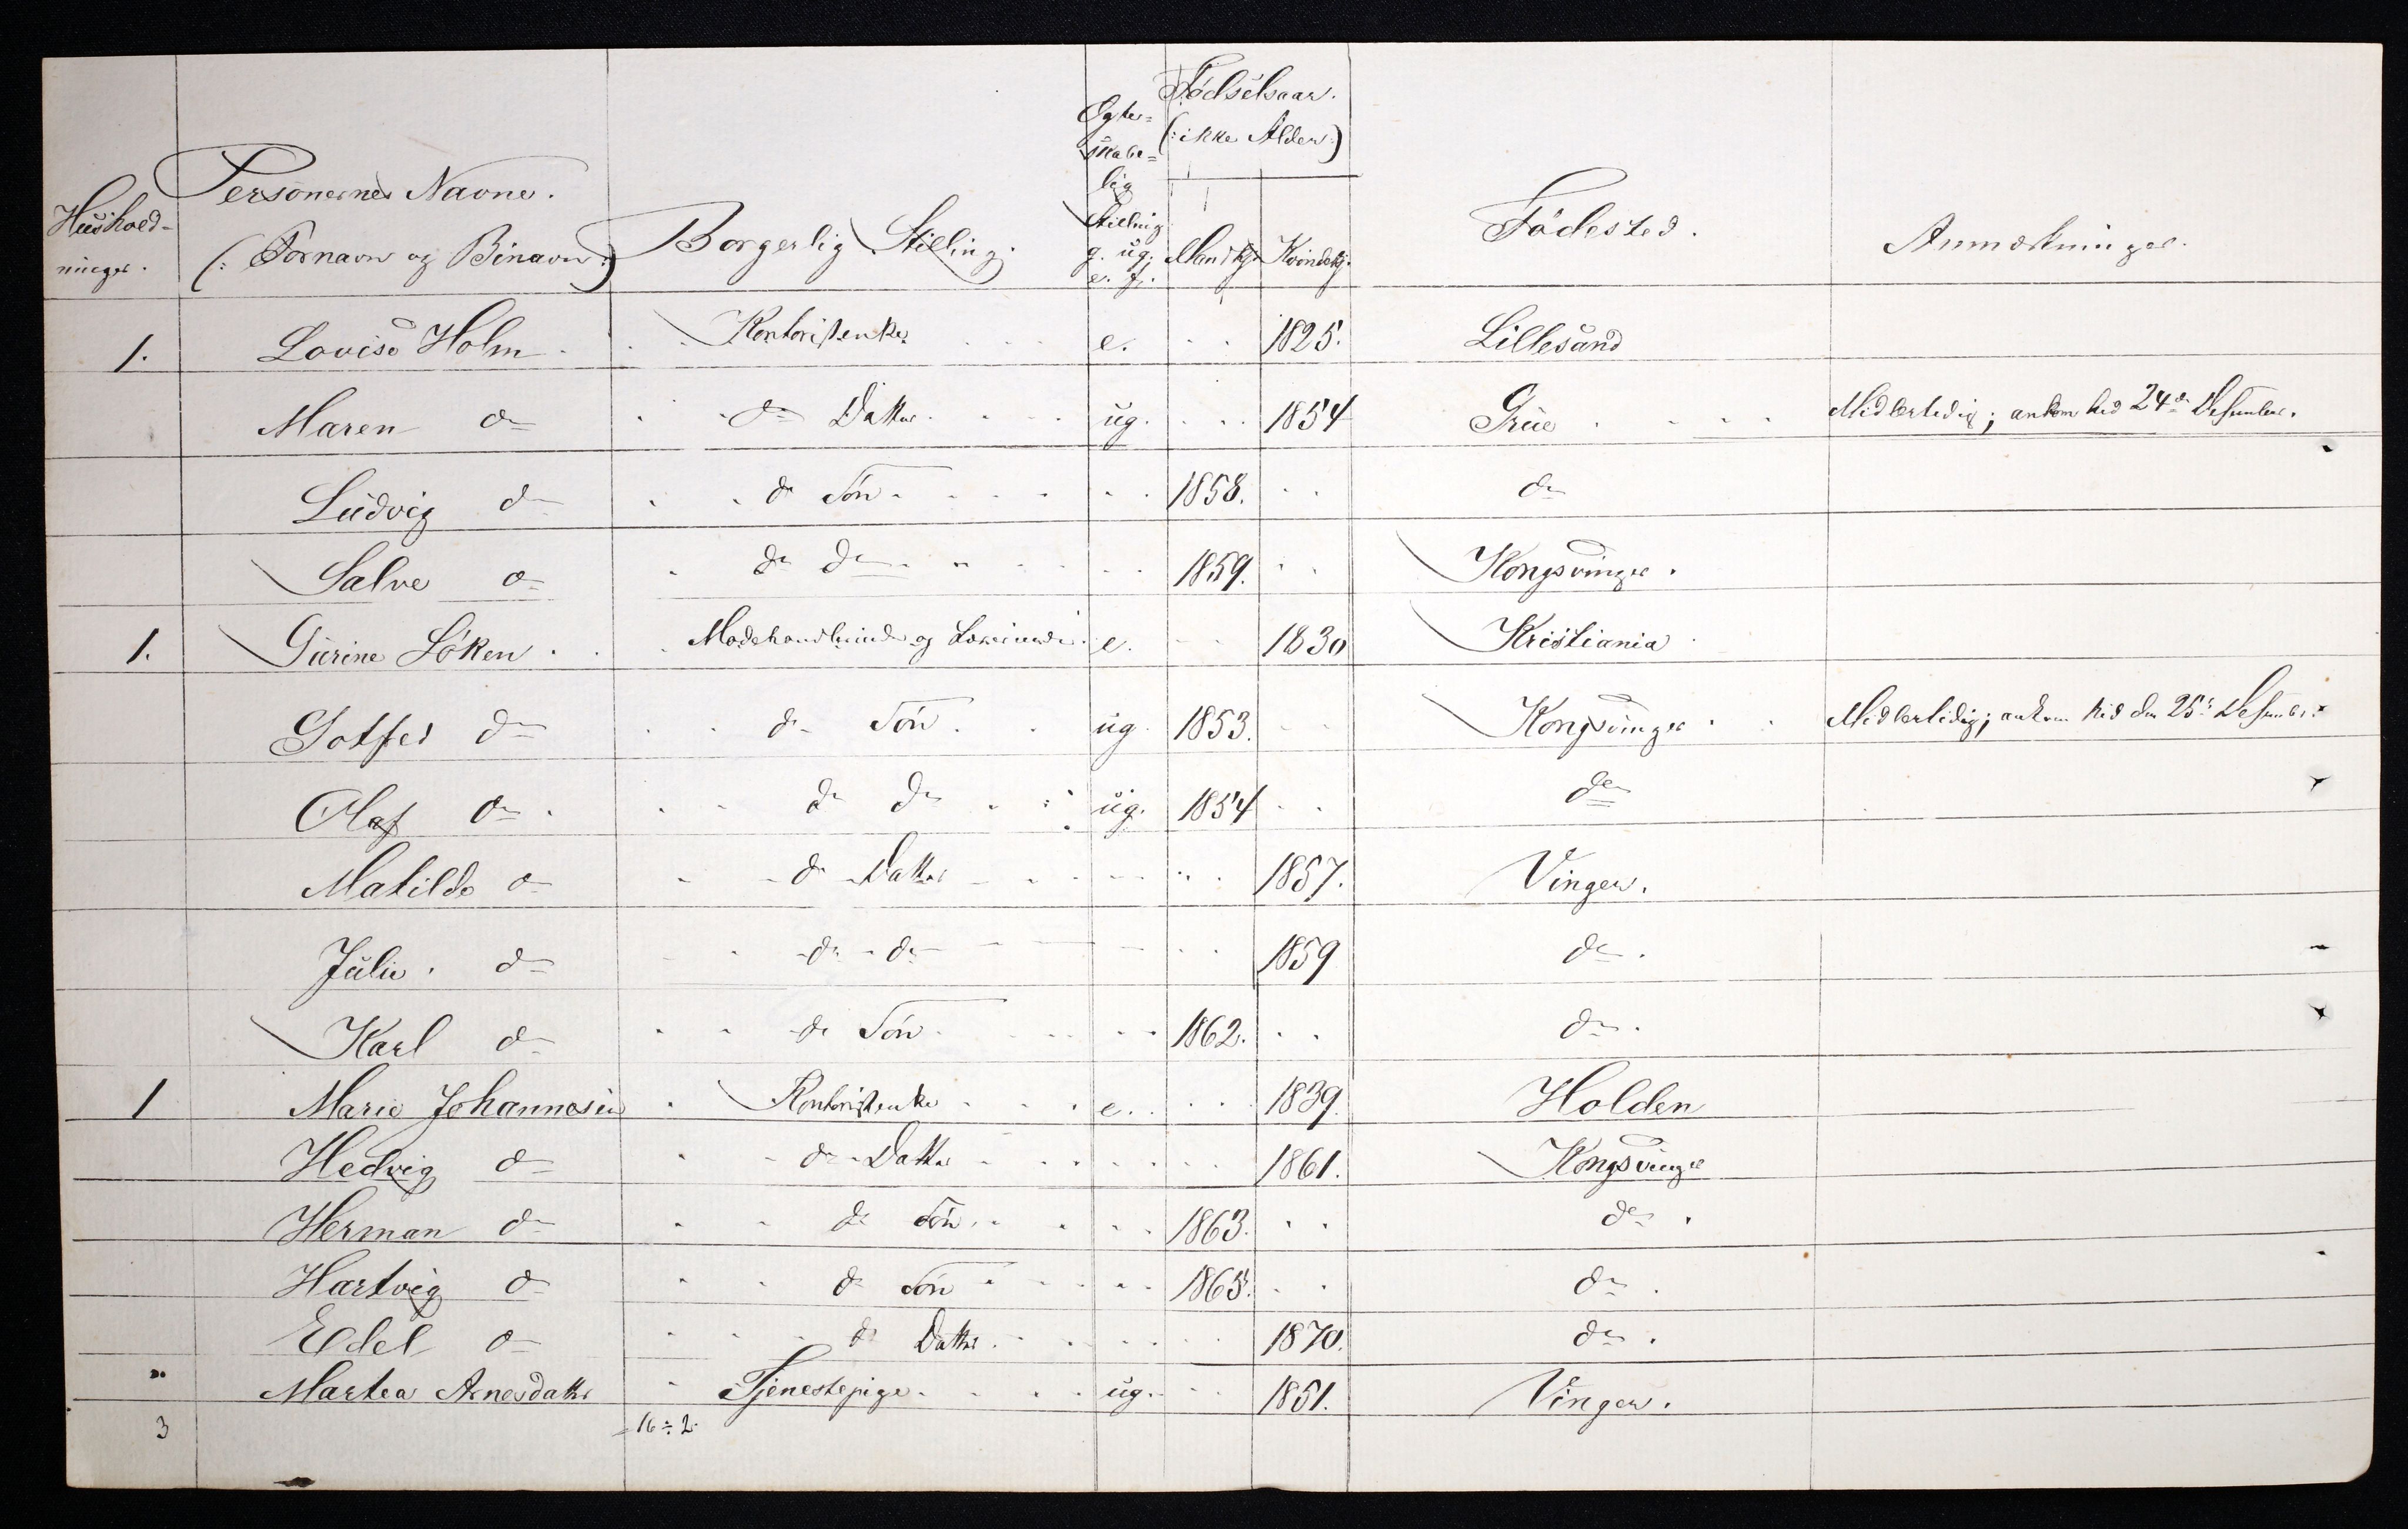 Hushold-
ninger.
Personernes Navne.
(: Fornavn og Binavn :)
Borgerlig Stilling.
Egte=
skabe=
lig
Stilling
g. ug.
e. f.
Fødselsaar.
(: ikke Alder :)
Mandkj. Kvindekj.
Fødested.
Anmærkninger.
1. Lovise Holm. Kontoristenke e. 1825. Lillesand
Maren do do Datter ug. 1854 Grue Midlertidig; ankom hid 24de Desember.
Ludvig do do Søn 1858. do
Salve do do do 1859. Kongsvinger.
1. Gurine Løken. Modehandlerinde og e. 1830 Kristiania
Gotfed do do Søn. ug. 1853. Kongsvinger Midlertidig; ankom hid den 25de Desember.
Olaf do. do do ug. 1854 do
Matilde do do Datter 1857. Vinger.
Julie. do do do 1859 do.
Karl do do Søn 1862. do.
1 Marie Johannesen Kontoristenke e. 1839. Holden
Hedvig do do Datter 1861. Kongsvinger
Herman do do Søn 1863. do.
Hartvig do do Søn 1865. do.
Edel do do Datter. 1870. do.
Martea Arnesdatter Tjenestepige. ug. 1851. Vinger.
3 16 ÷ 2.